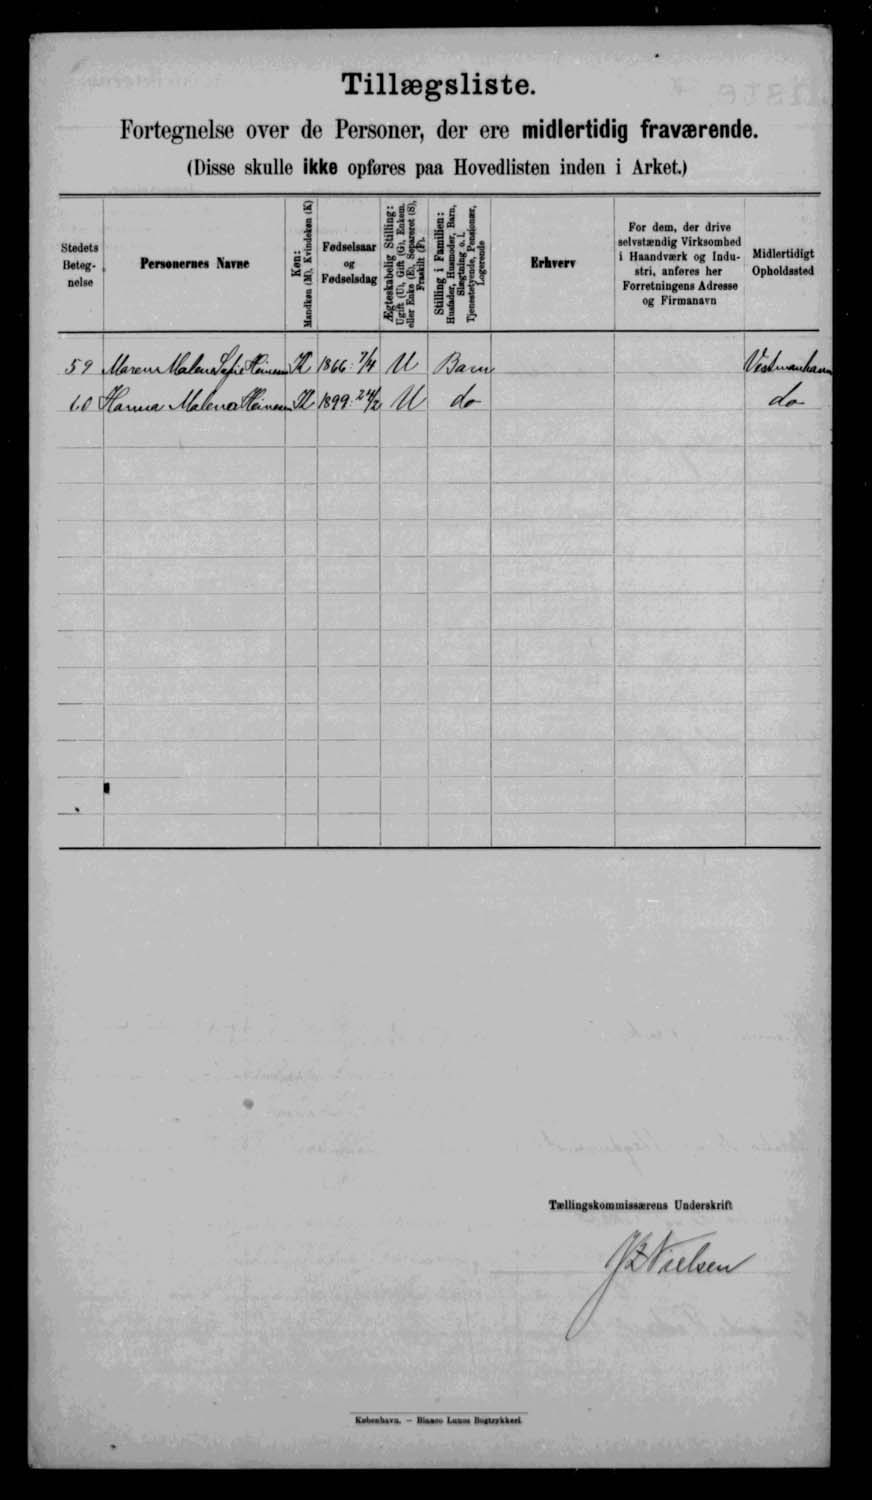 Tillægsliste.
Fortegnelse over de Personer, der ere midlertidig fraværende.
(Disse skulle ikke opføres paa Hovedlisten inden i Arket.)
Stedets
Beteg-
nelse
Personernes Navne
Køn:
Mandkøn (M), Kvindekøn (K)
Fødselsaar
og
Fødselsdag
Ægteskabelig Stilling:
Ugift (U), Gift (G), Enkem.
eller Enke (E), Separeret (S),
Fraskilt (F).
Stilling i Familien:
Husfader, Husmoder, Barn,
Slægtning o. l.
Tjenestetyende, Pensionær,
Logerende
Erhverv
For dem, der drive
selvstændig Virksomhed
i Haandværk og Indu-
stri, anføres her
Forretningens Adresse
og Firmanavn
Midlertidigt
Opholdssted
59 Maren Malena Sofie Heinesen K 1866 7/4 U Barn Vestmanhavn
60 Hanna Malena Heinesen K 1899 24/2 U do do
Tællingskommissærens Underskrift
Nielsen
København. – Bianco Lunos Bogtrykkeri.